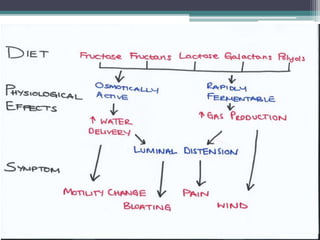 DIET Fructose Fructans Lactose Galactans Polyols
PHYSIOLOGICAL EFFECTS
OSMOTICALLY ACTIVE
RAPIDLY FERMENTABLE
↑ WATER DELIVERY
↑ GAS PRODUCTION
LUMINAL DISTENSION
SYMPTOM
MOTILITY CHANGE
BLOATING
PAIN
WIND